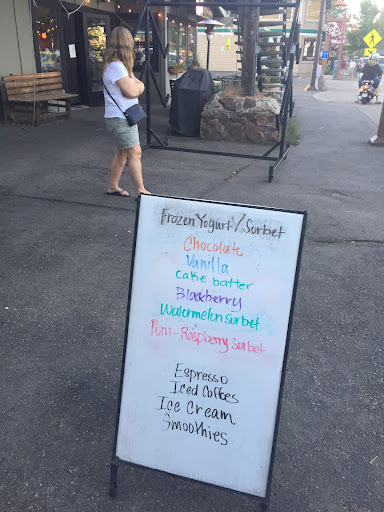 Frozen Yogurt/Sorbet
Chocolate
Vanilla
cake batter
Blackberry
Watermelon sorbet
Raspberry sorbet
Espresso
Iced Coffees
Ice Cream
Smoothies